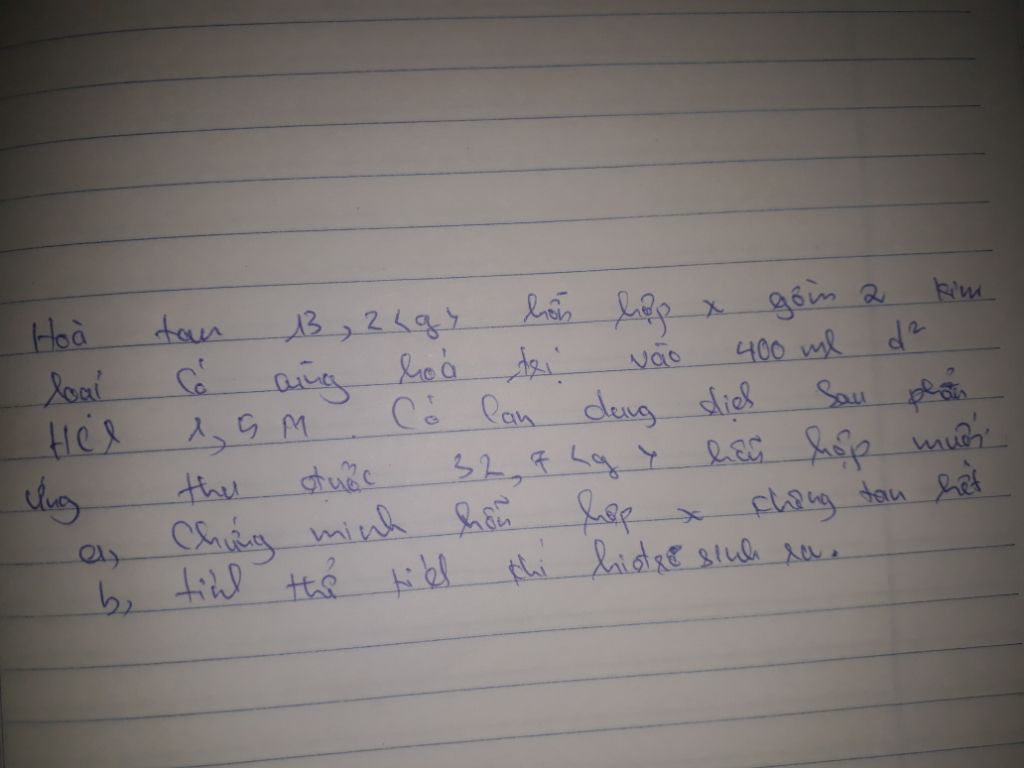 Hoà tan 13,2<g> hỗn hợp x gồm 2 kim
loại có cùng hoá trị vào 400 ml d²
HCl 1,5M. Cô cạn dung dịch sau phản
ứng thu được 32,7<g> hỗn hợp muối
a, Chứng minh hỗn hợp x không tan hết
b, tính thể tích khí hiđrô sinh ra.